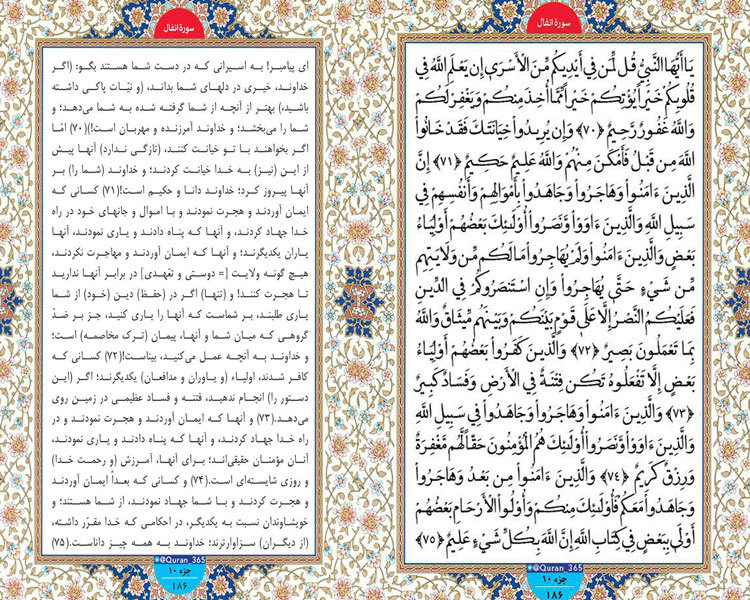 سورة انفال
يَا أَيُّهَا النَّبِيُّ قُل لِّمَن فِي أَيْدِيكُم مِّنَ الْأَسْرَى إِن يَعْلَمِ اللَّهُ فِي
قُلُوبِكُمْ خَيْراً يُؤْتِكُمْ خَيْراً مِّمَّا أُخِذَ مِنكُمْ وَيَغْفِرْ لَكُمْ
وَاللَّهُ غَفُورٌ رَّحِيمٌ ﴿٧٠﴾ وَإِن يُرِيدُواْ خِيَانَتَكَ فَقَدْ خَانُواْ
اللَّهَ مِن قَبْلُ فَأَمْكَنَ مِنْهُمْ وَاللَّهُ عَلِيمٌ حَكِيمٌ ﴿٧١﴾ إِنَّ
الَّذِينَ ءَامَنُواْ وَهَاجَرُواْ وَجَاهَدُواْ بِأَمْوَالِهِمْ وَأَنفُسِهِمْ فِي
سَبِيلِ اللَّهِ وَالَّذِينَ ءَاوَواْ وَّنَصَرُواْ أُوْلَئِكَ بَعْضُهُمْ أَوْلِيَاءُ
بَعْضٍ وَالَّذِينَ ءَامَنُواْ وَلَمْ يُهَاجِرُواْ مَا لَكُم مِّن وَلَايَتِهِم
مِّن شَيْءٍ حَتَّى يُهَاجِرُواْ وَإِنِ اسْتَنصَرُوكُمْ فِي الدِّينِ
فَعَلَيْكُمُ النَّصْرُ إِلَّا عَلَى قَوْمٍ بَيْنَكُمْ وَبَيْنَهُم مِّيثَاقٌ وَاللَّهُ
بِمَا تَعْمَلُونَ بَصِيرٌ ﴿٧٢﴾ وَالَّذِينَ كَفَرُواْ بَعْضُهُمْ أَوْلِيَاءُ
بَعْضٍ إِلَّا تَفْعَلُوهُ تَكُن فِتْنَةٌ فِي الْأَرْضِ وَفَسَادٌ كَبِيرٌ
﴿٧٣﴾ وَالَّذِينَ ءَامَنُواْ وَهَاجَرُواْ وَجَاهَدُواْ فِي سَبِيلِ اللَّهِ
وَالَّذِينَ ءَاوَواْ وَّنَصَرُواْ أُوْلَئِكَ هُمُ الْمُؤْمِنُونَ حَقّاً لَّهُم مَّغْفِرَةٌ
وَرِزْقٌ كَرِيمٌ ﴿٧٤﴾ وَالَّذِينَ ءَامَنُواْ مِن بَعْدُ وَهَاجَرُواْ
وَجَاهَدُواْ مَعَكُمْ فَأُوْلَئِكَ مِنكُمْ وَأُوْلُواْ الْأَرْحَامِ بَعْضُهُمْ
أَوْلَى بِبَعْضٍ فِي كِتَابِ اللَّهِ إِنَّ اللَّهَ بِكُلِّ شَيْءٍ عَلِيمٌ ﴿٧٥﴾
@Quran_365
جزء ۱۰
۱۸۶
سورة انفال
ای پیامبر! به اسیرانی که در دست شما هستند بگو: (اگر
خداوند، خیری در دلهای شما بداند، (و نیّات پاکی داشته
باشید،) بهتر از آنچه از شما گرفته شده به شما می‌دهد؛ و
شما را می‌بخشد؛ و خداوند آمرزنده و مهربان است!)(۷۰) امّا
اگر بخواهند با تو خیانت کنند، (تازگی ندارد) آنها پیش
از این (نیز) به خدا خیانت کردند؛ و خداوند (شما را) بر
آنها پیروز کرد؛ خداوند دانا و حکیم است!(۷۱) کسانی که
ایمان آوردند و هجرت نمودند و با اموال و جانهای خود در راه
خدا جهاد کردند، و آنها که پناه دادند و یاری نمودند، آنها
یاران یکدیگرند؛ و آنها که ایمان آوردند و مهاجرت نکردند،
هیچ گونه ولایت [= دوستی و تعهّدی] در برابر آنها ندارید
تا هجرت کنند! و (تنها) اگر در (حفظ) دین (خود) از شما
یاری طلبند، بر شماست که آنها را یاری کنید، جز بر ضدّ
گروهی که میان شما و آنها، پیمان (ترک مخاصمه) است؛
و خداوند به آنچه عمل می‌کنید، بیناست!(۷۲) کسانی که
کافر شدند، اولیاء (و یاوران و مدافعان) یکدیگرند؛ اگر (این
دستور را) انجام ندهید، فتنه و فساد عظیمی در زمین روی
می‌دهد.(۷۳) و آنها که ایمان آوردند و هجرت نمودند و در
راه خدا جهاد کردند، و آنها که پناه دادند و یاری نمودند،
آنان مؤمنان حقیقی‌اند؛ برای آنها، آمرزش (و رحمت خدا)
و روزی شایسته‌ای است.(۷۴) و کسانی که بعداً ایمان آوردند
و هجرت کردند و با شما جهاد نمودند، از شما هستند؛ و
خویشاوندان نسبت به یکدیگر، در احکامی که خدا مقرّر داشته،
(از دیگران) سزاوارترند؛ خداوند به همه چیز داناست.(۷۵)
@Quran_365
جزء ۱۰
۱۸۶